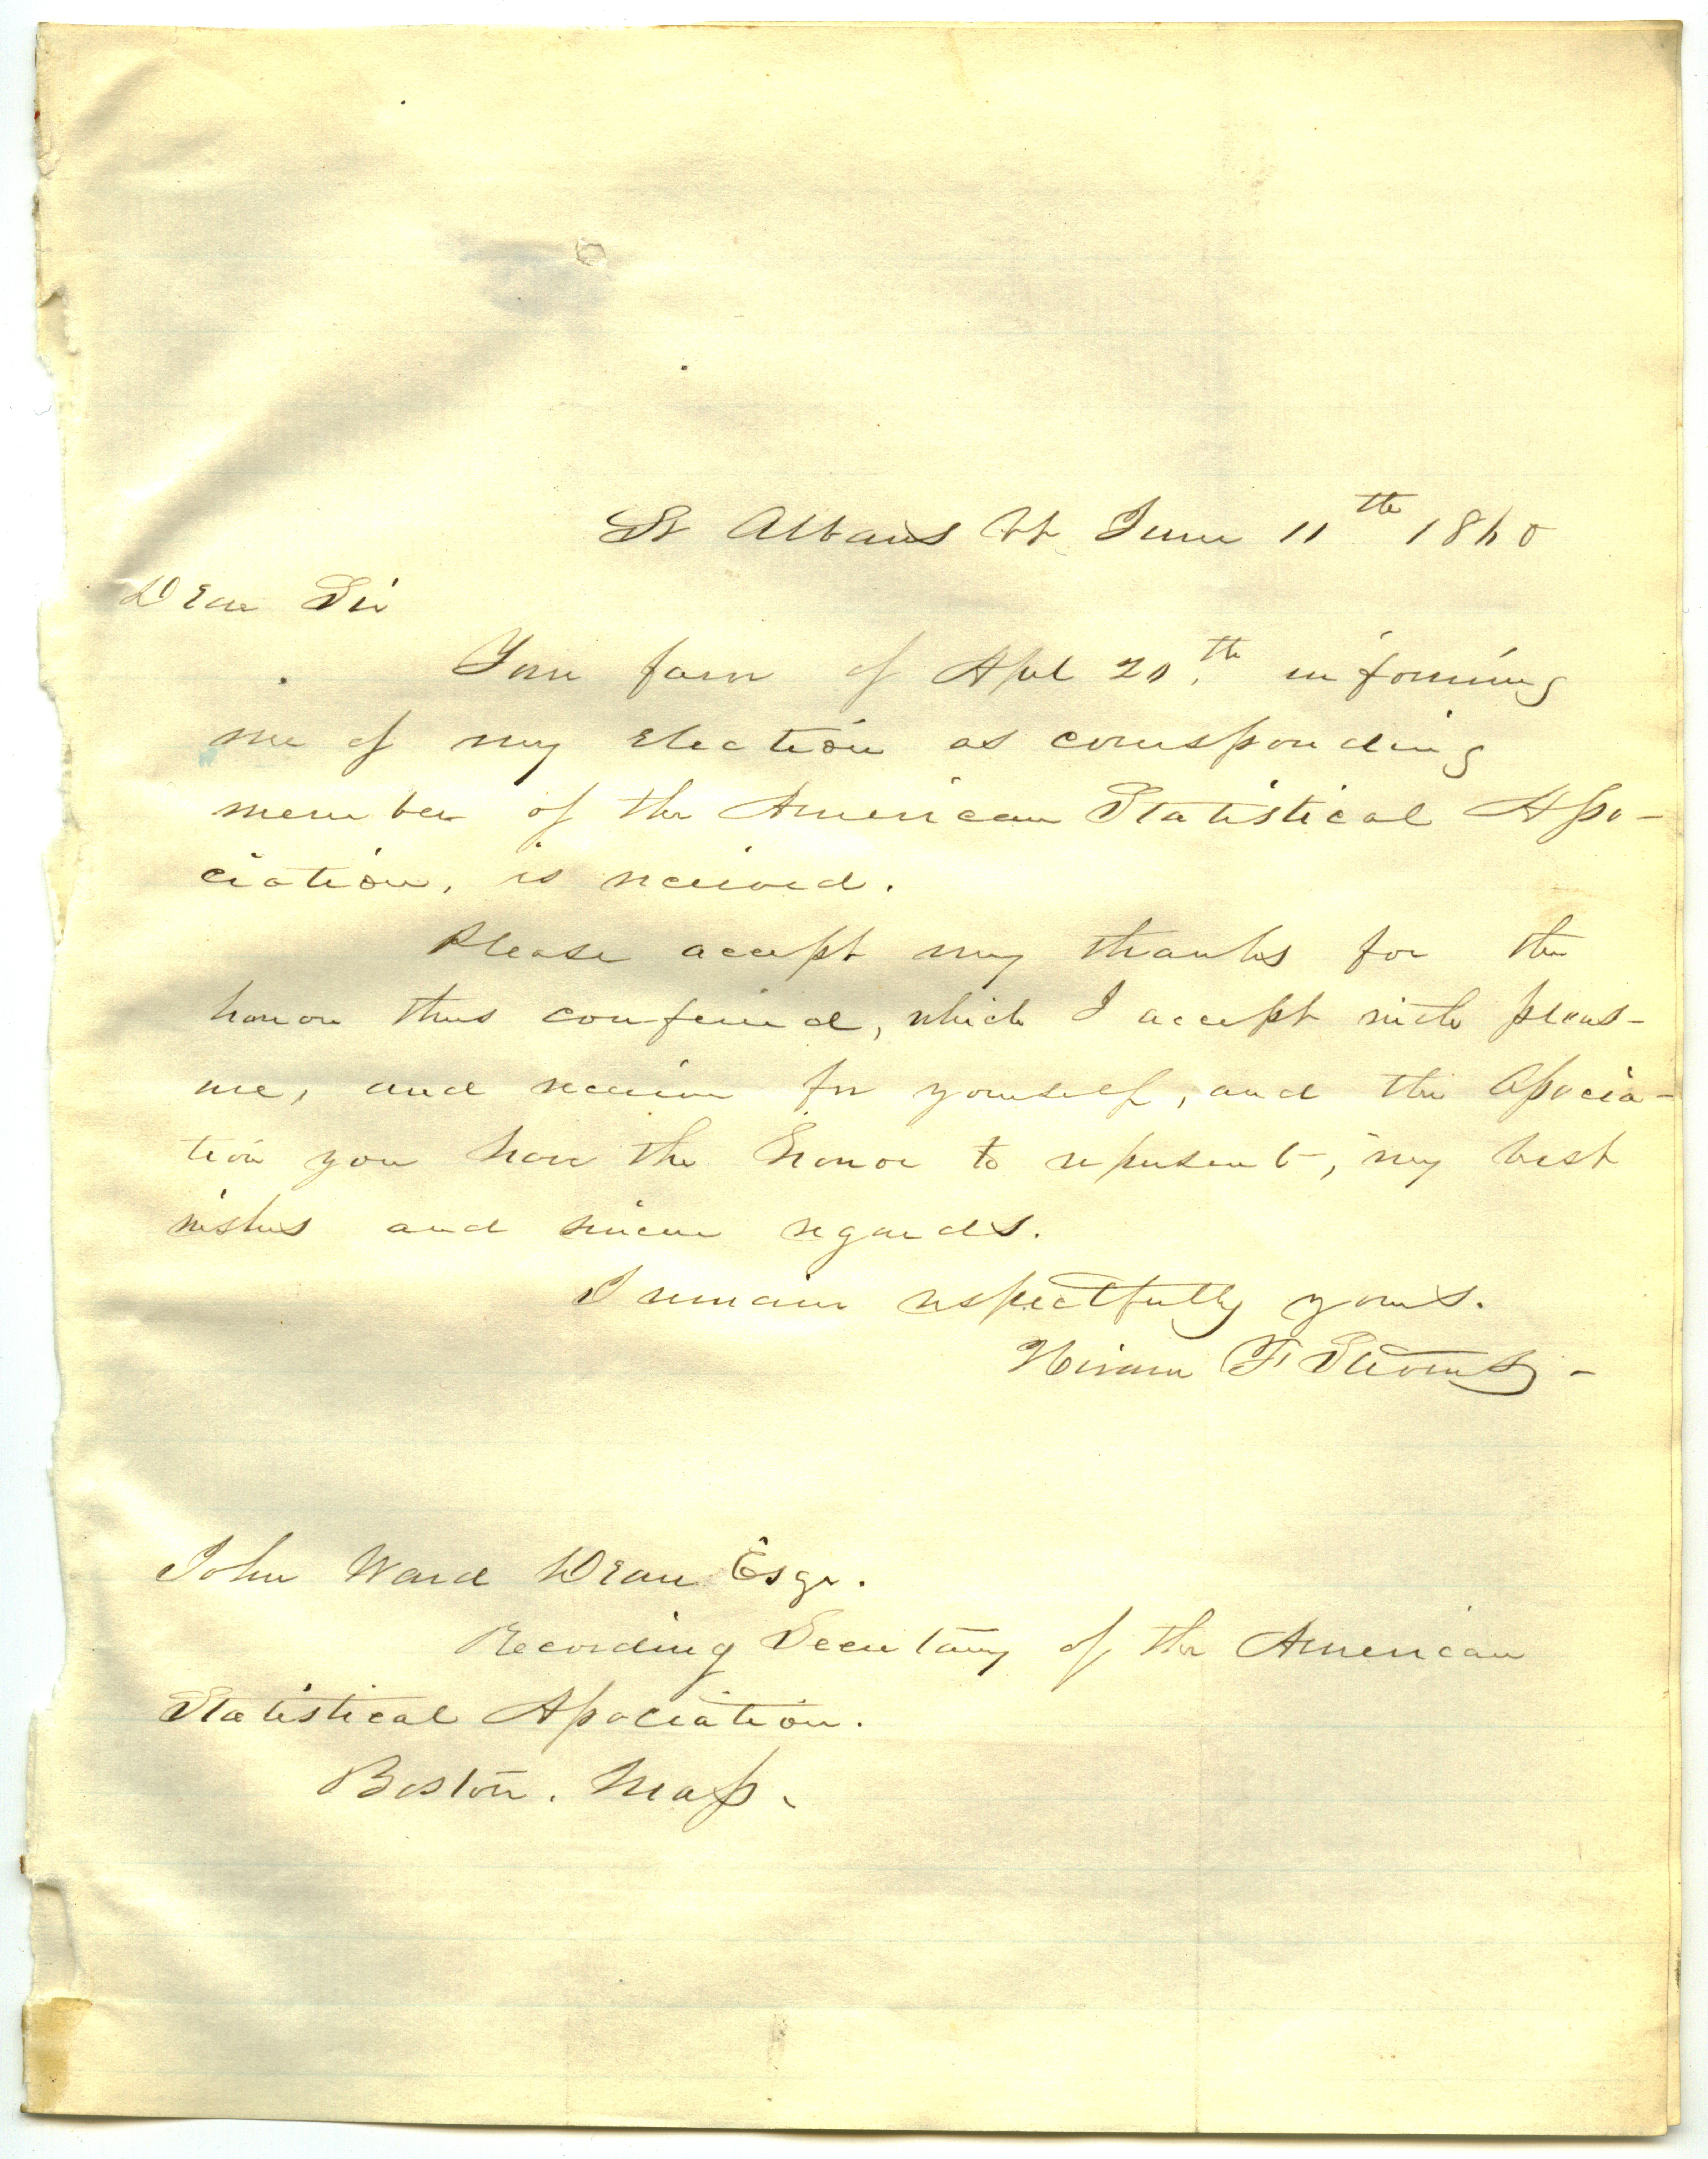 St Albans Vt June 11th 1860
Dear Sir
Your favr of Apl 20th. informing
me of my election as corresponding
member of the American Statistical Asso-
ciation, is received.
Please accept my thanks for the
honor thus conferred, which I accept with pleas-
ure, and receive for yourself, and the Associa-
tion you have the honor to represent, my best
wishes and sincere regards.
I remain respectfully yours.
Hiram F Stevens -
John Ward Dean Esqr.
Recording Secretary of the American
Statistical Association.
Boston. Mass.